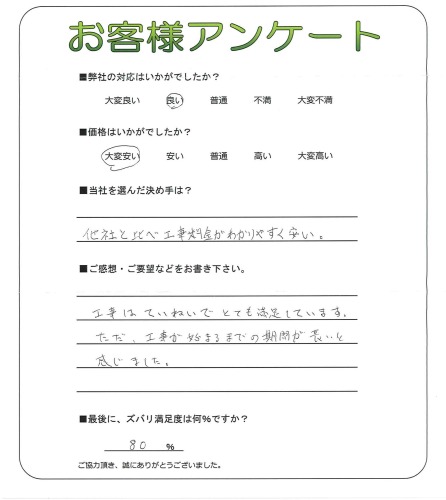 お客様アンケート
■弊社の対応はいかがでしたか？
大変良い 良い 普通 不満 大変不満
■価格はいかがでしたか？
大変安い 安い 普通 高い 大変高い
■当社を選んだ決め手は？
他社と比べ工事料金がわかりやすく安い。
■ご感想・ご要望などをお書き下さい。
工事はていねいでとても満足しています。
ただ、工事が始まるまでの期間が長いと
感じました。
■最後に、ズバリ満足度は何%ですか？
80 %
ご協力頂き、誠にありがとうございました。